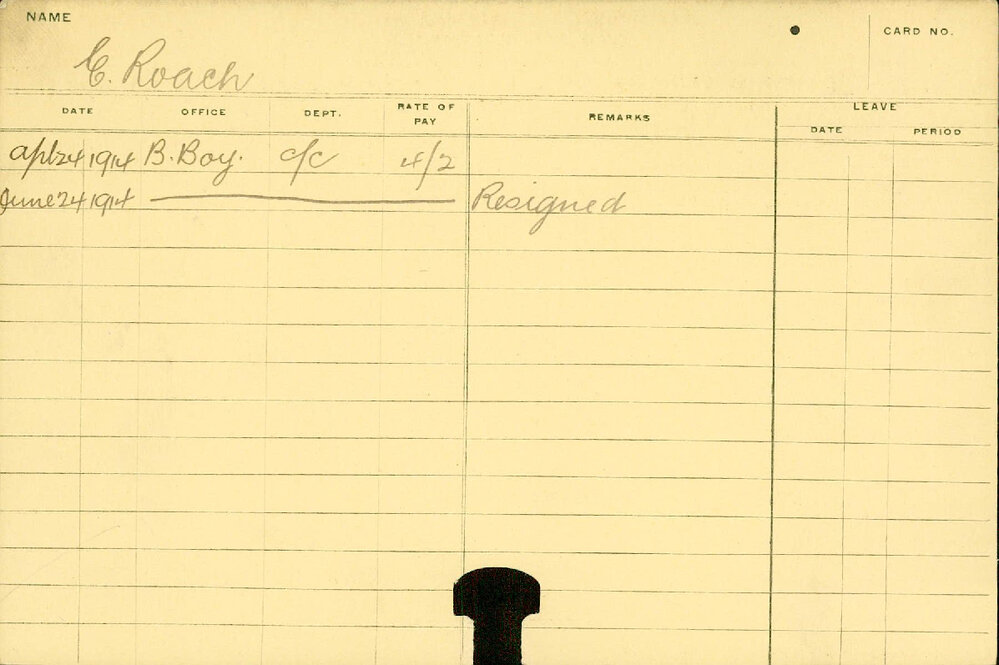 NAME
CARD NO.
E. Roach
DATE OFFICE DEPT. RATE OF PAY REMARKS LEAVE
DATE PERIOD
Apl 24 1914 B. Boy. c/c 4/2
June 24 1914 Resigned